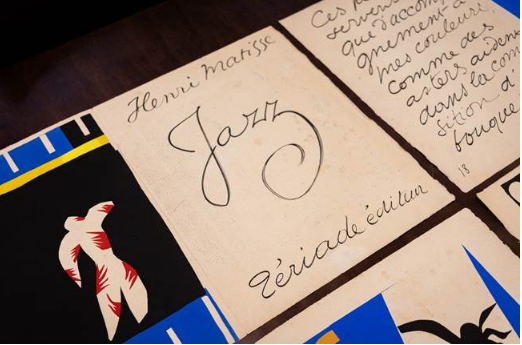 Henri Matisse
Jazz
Tériade éditeur
Ces
servent
que d'accom
gnement à
mes couleurs
comme des
asters aident
dans la com
sition d'
bouque
18